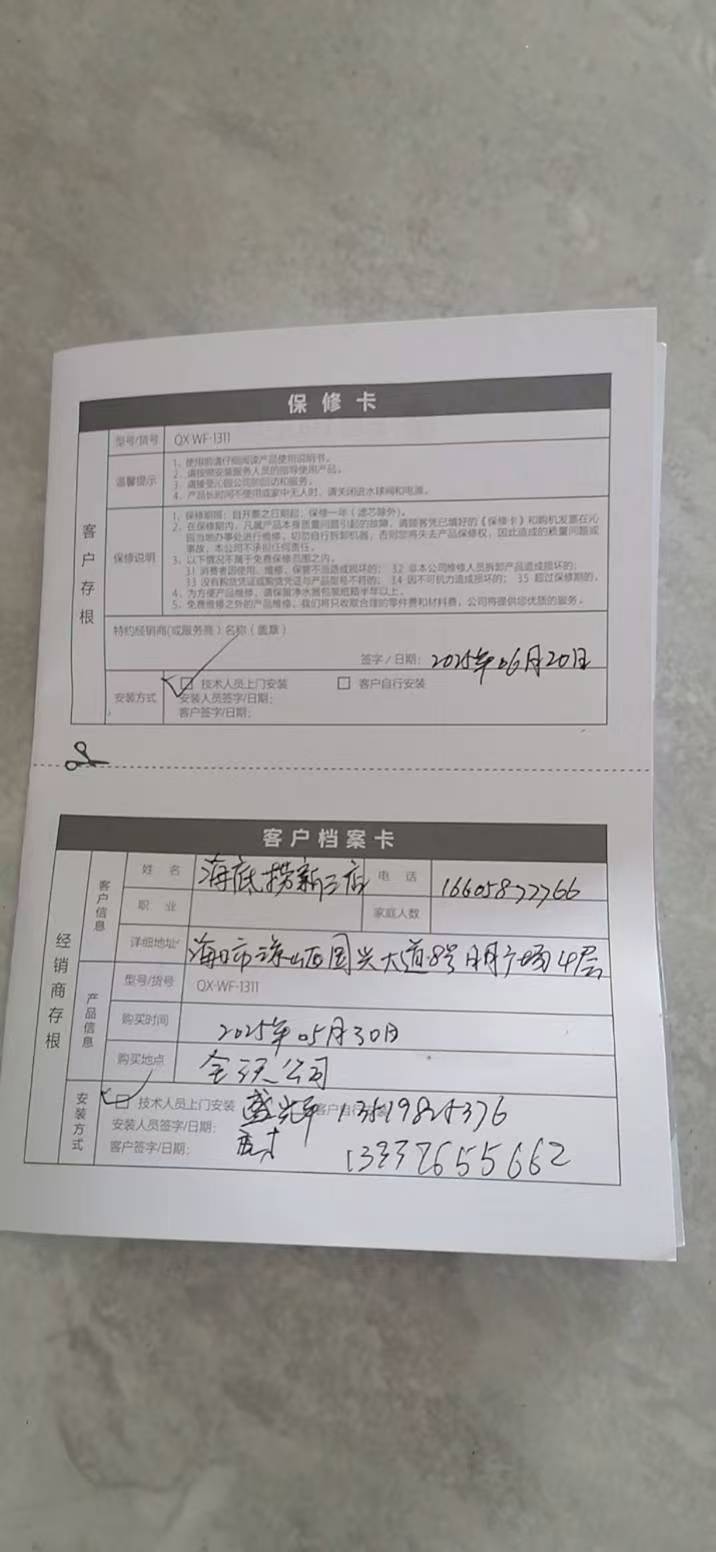 保修卡
客户存根
型号/货号 QX-WF-1311
温馨提示
1、使用前请仔细阅读产品使用说明书。
2、请按照安装服务人员的指导使用产品。
3、请接受沁园公司的回访和服务。
4、产品长时间不使用或家中无人时，请关闭进水球阀和电源。
保修说明
1、保修期限：自开票之日期起，保修一年（滤芯除外）。
2、在保修期内，凡属产品本身质量问题引起的故障，请顾客凭已填好的《保修卡》和购机发票在沁
园当地办事处进行维修，切勿自行拆卸机器，否则您将失去产品保修权，因此造成的质量问题或
事故，本公司不承担任何责任。
3、以下情况不属于免费保修范围之内。
3.1 消费者因使用、维修、保管不当造成损坏的； 3.2 非本公司维修人员拆卸产品造成损坏的；
3.3 没有购货凭证或购货凭证与产品型号不符的； 3.4 因不可抗力造成损坏的； 3.5 超过保修期的。
4、为方便产品维修，请保留净水器包装纸箱半年以上。
5、免费维修之外的产品维修，我们将只收取合理的零件费和材料费，公司将提供您优质的服务。
特约经销商(或服务商)名称（盖章）
签字/日期：2025年06月20日
安装方式
技术人员上门安装 客户自行安装
安装人员签字/日期：
客户签字/日期：
客户档案卡
经销商存根
客户信息
姓名 海底捞新三店 电话 16605877766
职业 家庭人数
详细地址 海口市 国兴大道8号日月广场4层
产品信息
型号/货号 QX-WF-1311
购买时间 2025年05月30日
购买地点 公司
安装方式
技术人员上门安装 客户自行安装 13519825376
安装人员签字/日期：
客户签字/日期： 13337655662